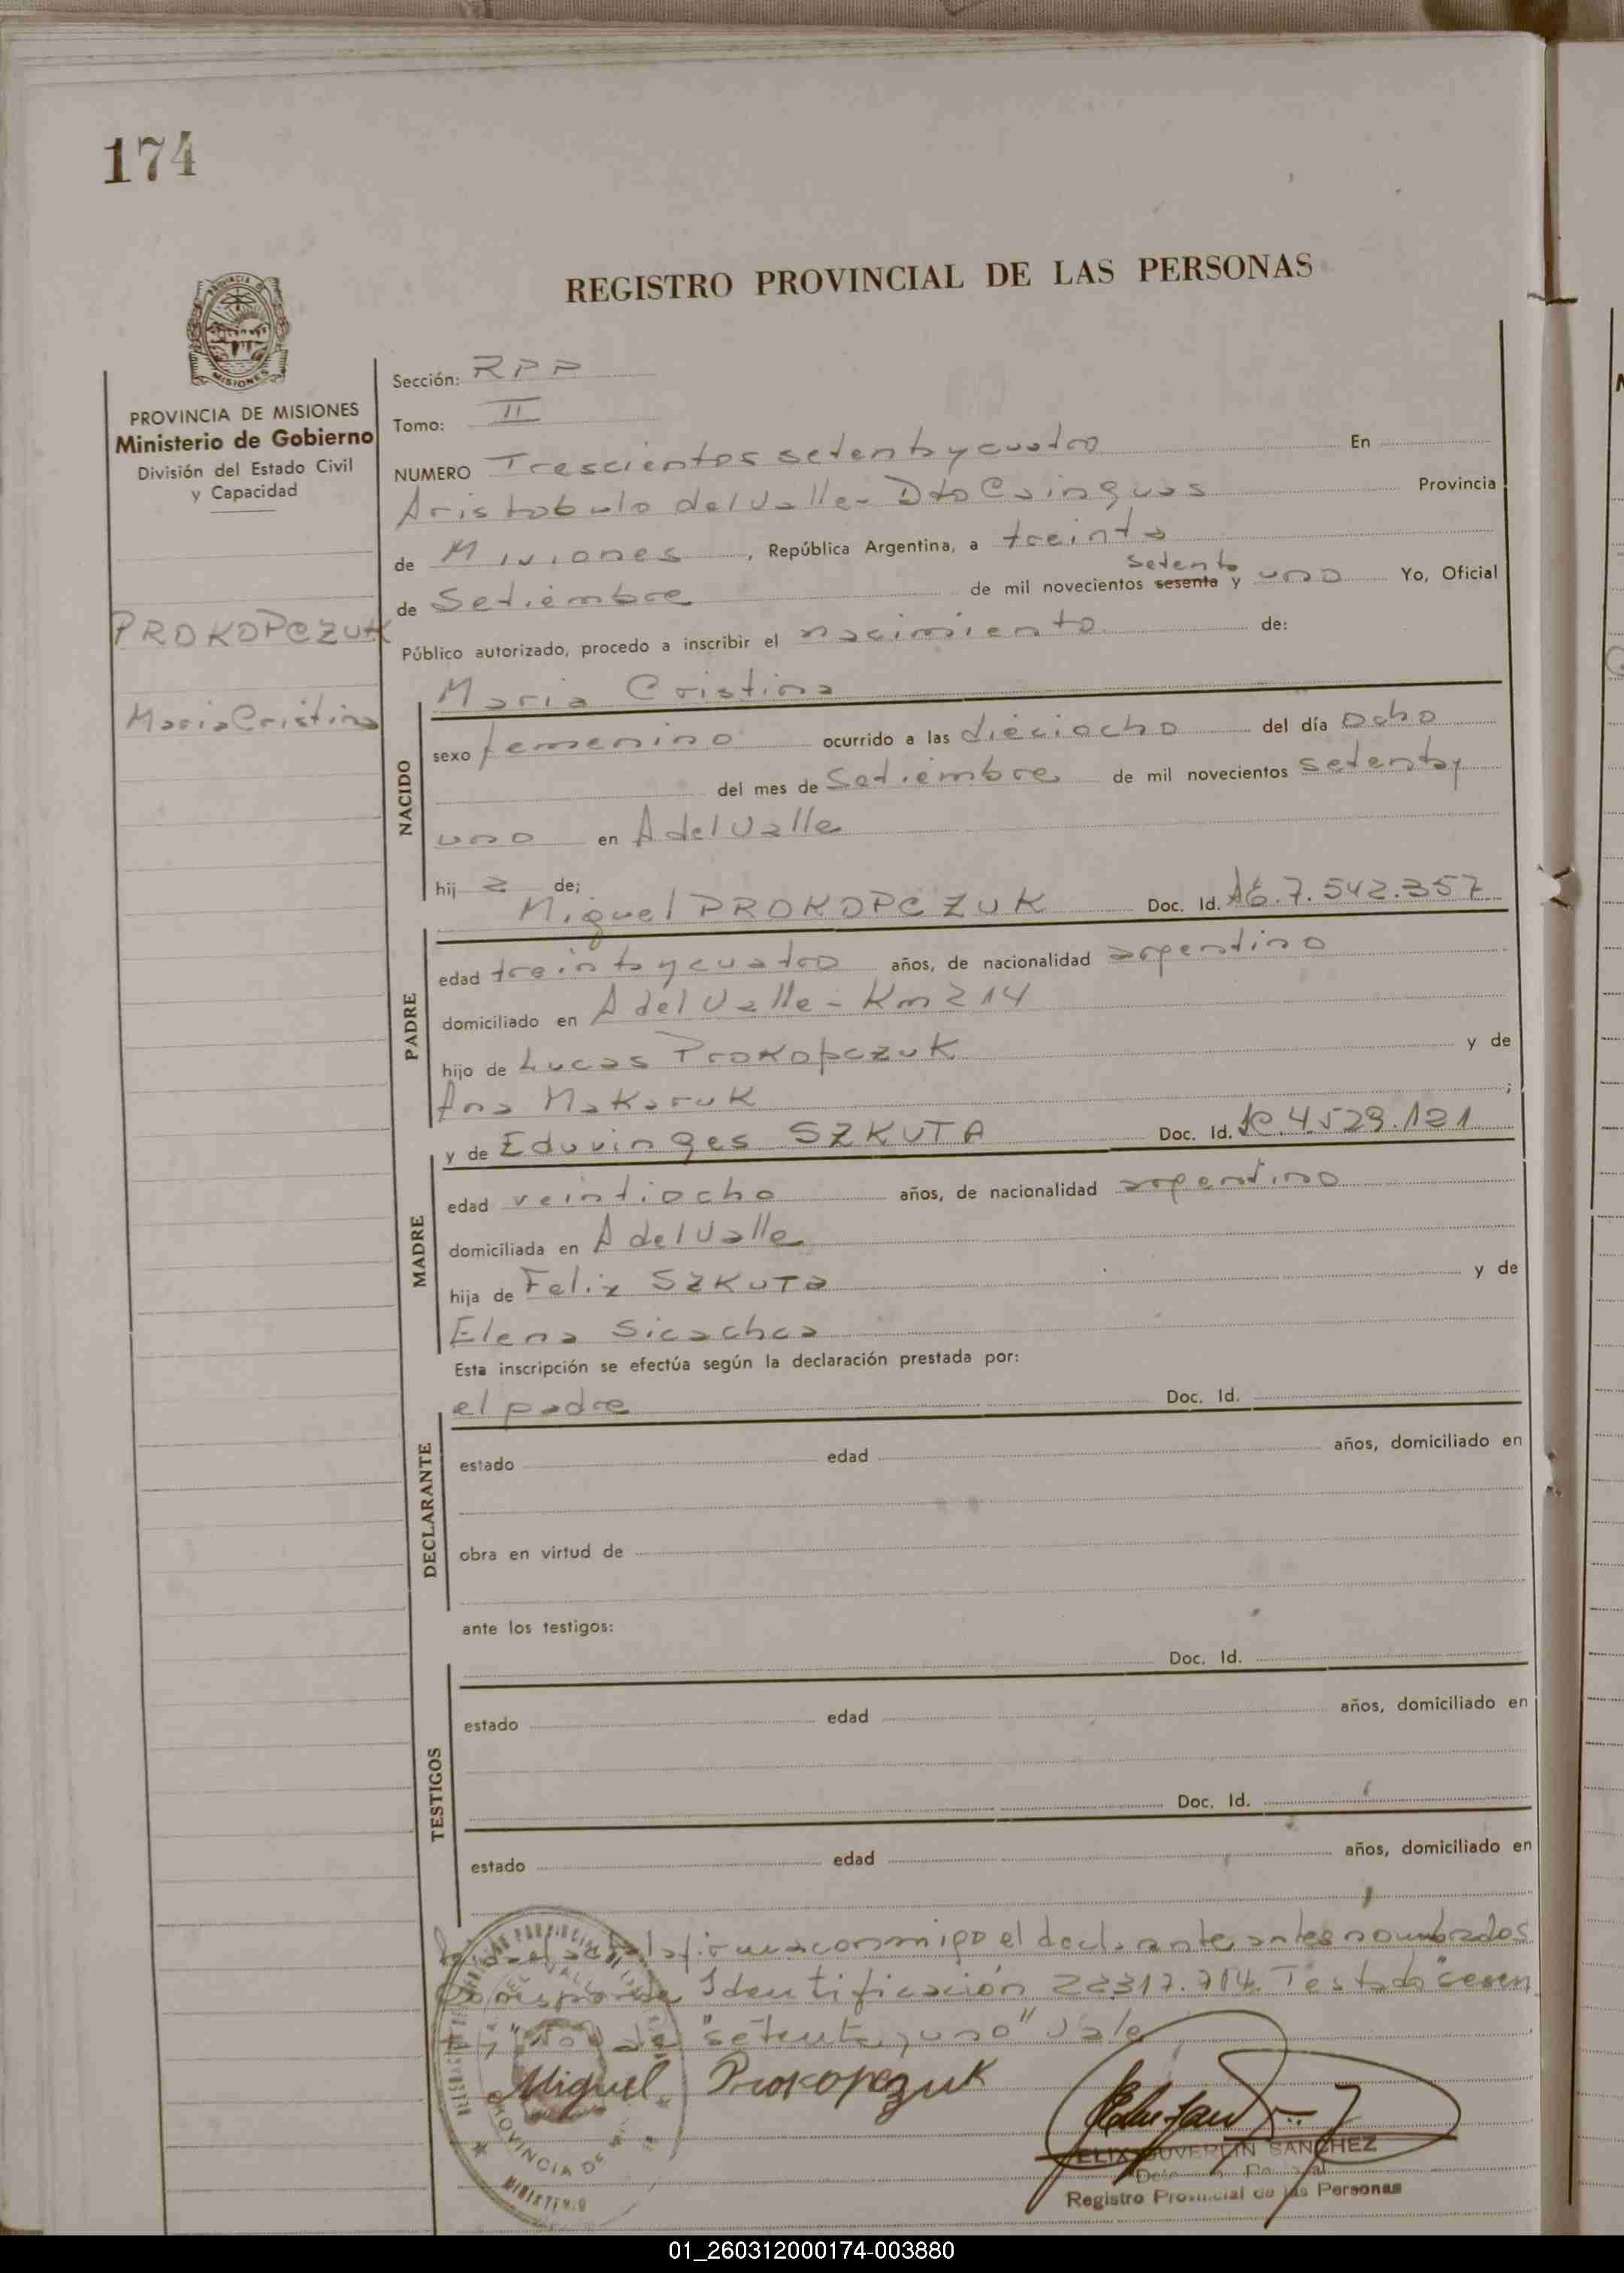 174
REGISTRO PROVINCIAL DE LAS PERSONAS
PROVINCIA DE MISIONES
Ministerio de Gobierno
División del Estado Civil
y Capacidad
PROKOPCZUK
Maria Cristina
Sección: RPP
Tomo: II
NUMERO Trescientos setenta y cuatro En
Aristobulo del Valle - Dto Cainguas Provincia
de Misiones, República Argentina, a treinta
setenta
de Setiembre de mil novecientos sesenta y uno Yo, Oficial
Público autorizado, procedo a inscribir el nacimiento de:
Maria Cristina
NACIDO
sexo femenino ocurrido a las dieciocho del día ocho
del mes de Setiembre de mil novecientos setenta y
uno en A del Valle
hij a de;
Miguel PROKOPCZUK Doc. Id. 7.542.357
PADRE
edad treinta y cuatro años, de nacionalidad argentino
domiciliado en A del Valle - Km 214
hijo de Lucas Prokopczuk y de
Ana Makaruk ;
y de Eduvinges SZKUTA Doc. Id. 4.529.121
MADRE
edad veintiocho años, de nacionalidad argentino
domiciliada en A del Valle
hija de Felix SZKUTA y de
Elena Sicachca
Esta inscripción se efectúa según la declaración prestada por:
el padre Doc. Id.
DECLARANTE
estado edad años, domiciliado en
obra en virtud de
ante los testigos:
Doc. Id.
TESTIGOS
estado edad años, domiciliado en
Doc. Id.
estado edad años, domiciliado en
firma conmigo el declarante antes nombrados
Identificación 22317.714 Testado
"setenta y uno" Vale
Miguel Prokopczuk
SANCHEZ
Registro Provincial de las Personas
PROVINCIA DE
MINISTERIO
01_260312000174-003880